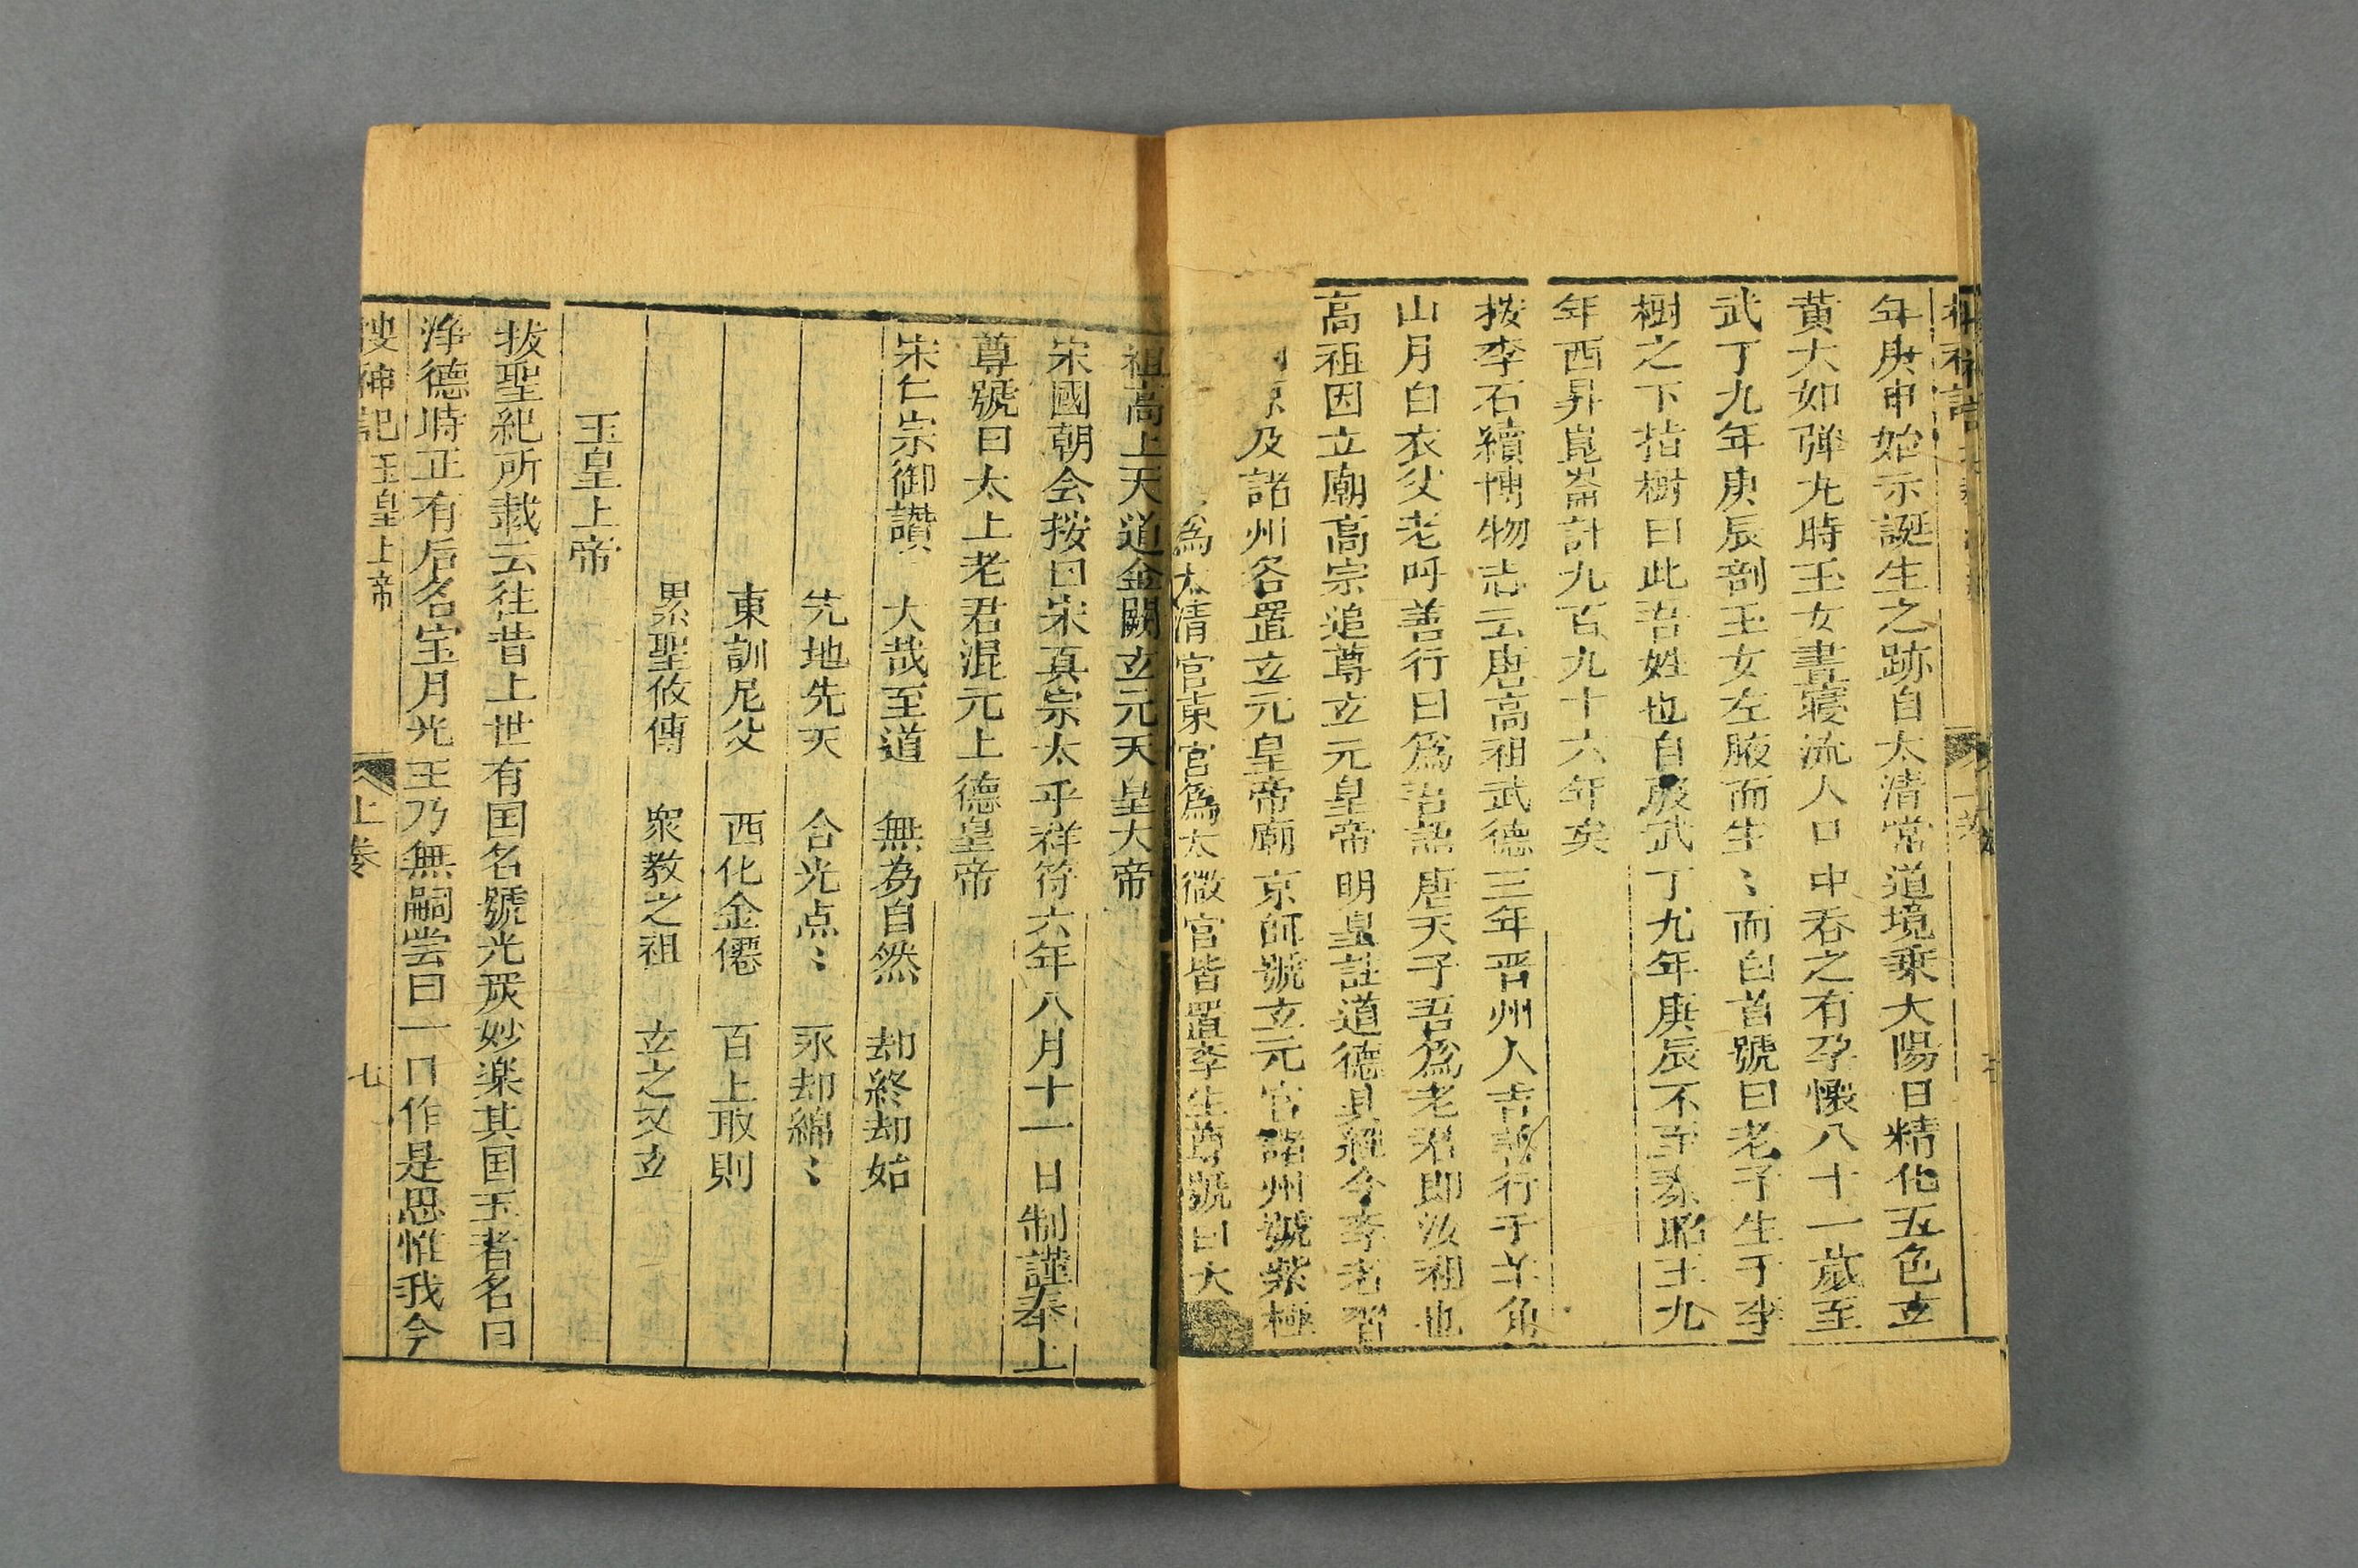 年庚申始示誕生之跡自太清常道境乗大陽日精化五色立
黄大如弾丸時玉女晝寝流人口中吞之有孕懷八十一歲至
武丁九年庚辰剖玉女左腋而生〻而白首號曰老子生于李
樹之下指樹曰此吾姓也自殷武丁九年庚辰不至秦昭王九
年西昇崑崙計九百九十六年矣
按李石續博物志云唐高祖武德三年晋州人吉善行于羊角
山月白衣父老呼善行曰為吾語唐天子吾為老君即汝祖也
高祖因立廟高宗追尊立元皇帝明皇註道德真經令李者習
京及諸州各置立元皇帝廟京師號立元宫諸州號紫極
為太清宫東宫為太微宫皆置李生尊號曰大
祖高上天道金闕玄元天皇大帝
宋國朝会按曰宋真宗太乎祥符六年八月十一日制謹奉上
尊號曰太上老君混元上德皇帝
宋仁宗御讃 大哉至道 無為自然 却終却始
先地先天 合光点〻 永却綿〻
東訓尼父 西化金僊 百上取則
累聖攸傳 衆教之祖 玄之又玄
玉皇上帝
拔聖紀所載云往昔上世有国名號光嚴妙楽其国王者名曰
浄德時正有后名宝月光王乃無嗣嘗曰一日作是思惟我今
搜神記 玉皇上帝 上卷 七